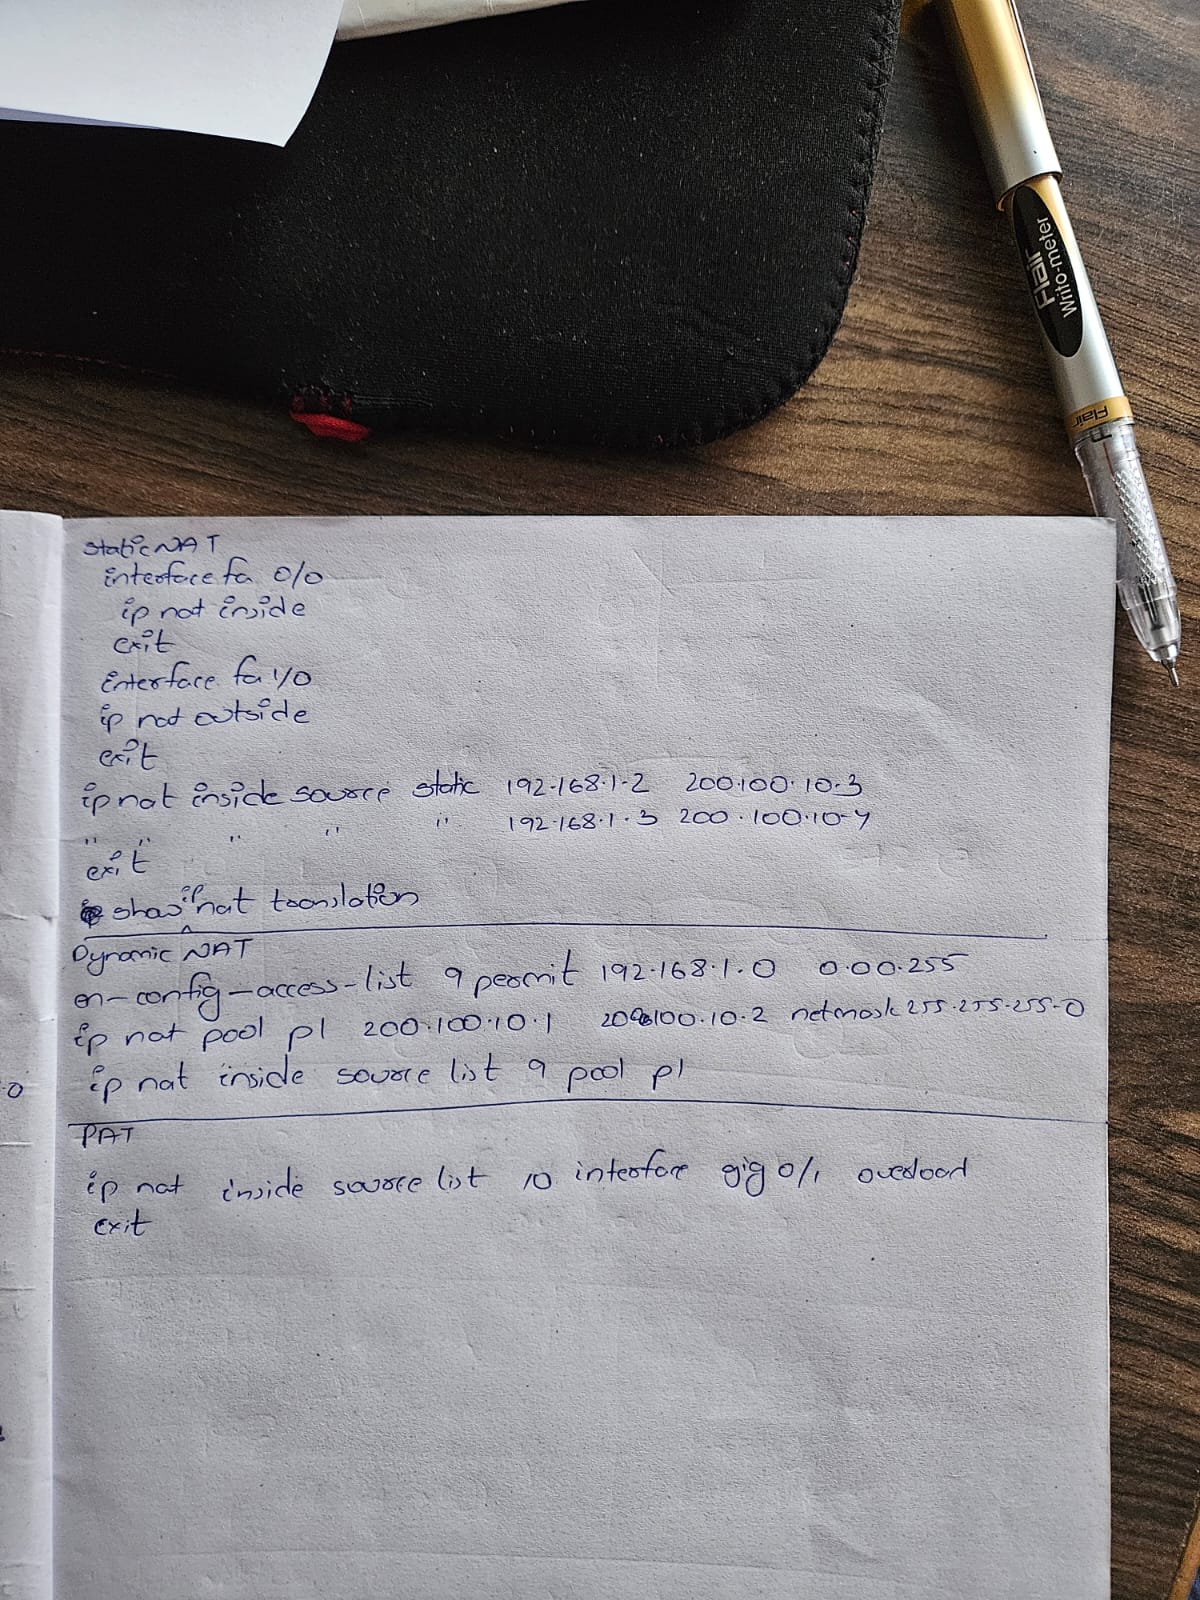 Flair
Writo-meter
Flair
Static NAT
interface fa 0/0
ip nat inside
exit
interface fa 1/0
ip nat outside
exit
ip nat inside source static 192.168.1.2 200.100.10.3
" " " " " 192.168.1.3 200.100.10.4
exit
show ip nat translation
Dynamic NAT
en-config-access-list 9 permit 192.168.1.0 0.00.255
ip nat pool p1 200.100.10.1 200.100.10.2 netmask 255.255.255.0
ip nat inside source list 9 pool p1
PAT
ip nat inside source list 10 interface gig 0/1 overload
exit